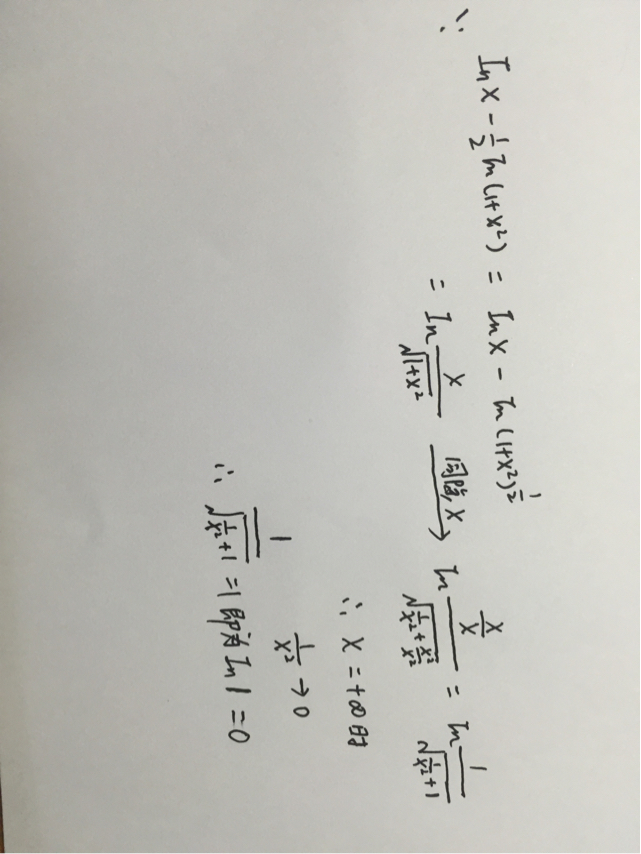 ∵ ln x - 1/2 ln(1+x²) = ln x - ln(1+x²)^(1/2)
= ln x/√(1+x²) 同除x→ ln (x/x)/√(1/x² + x²/x²) = ln 1/√(1/x²+1)
∴ x = +∞时
1/x² → 0
∴ 1/√(1/x²+1) = 1 即为 ln 1 = 0